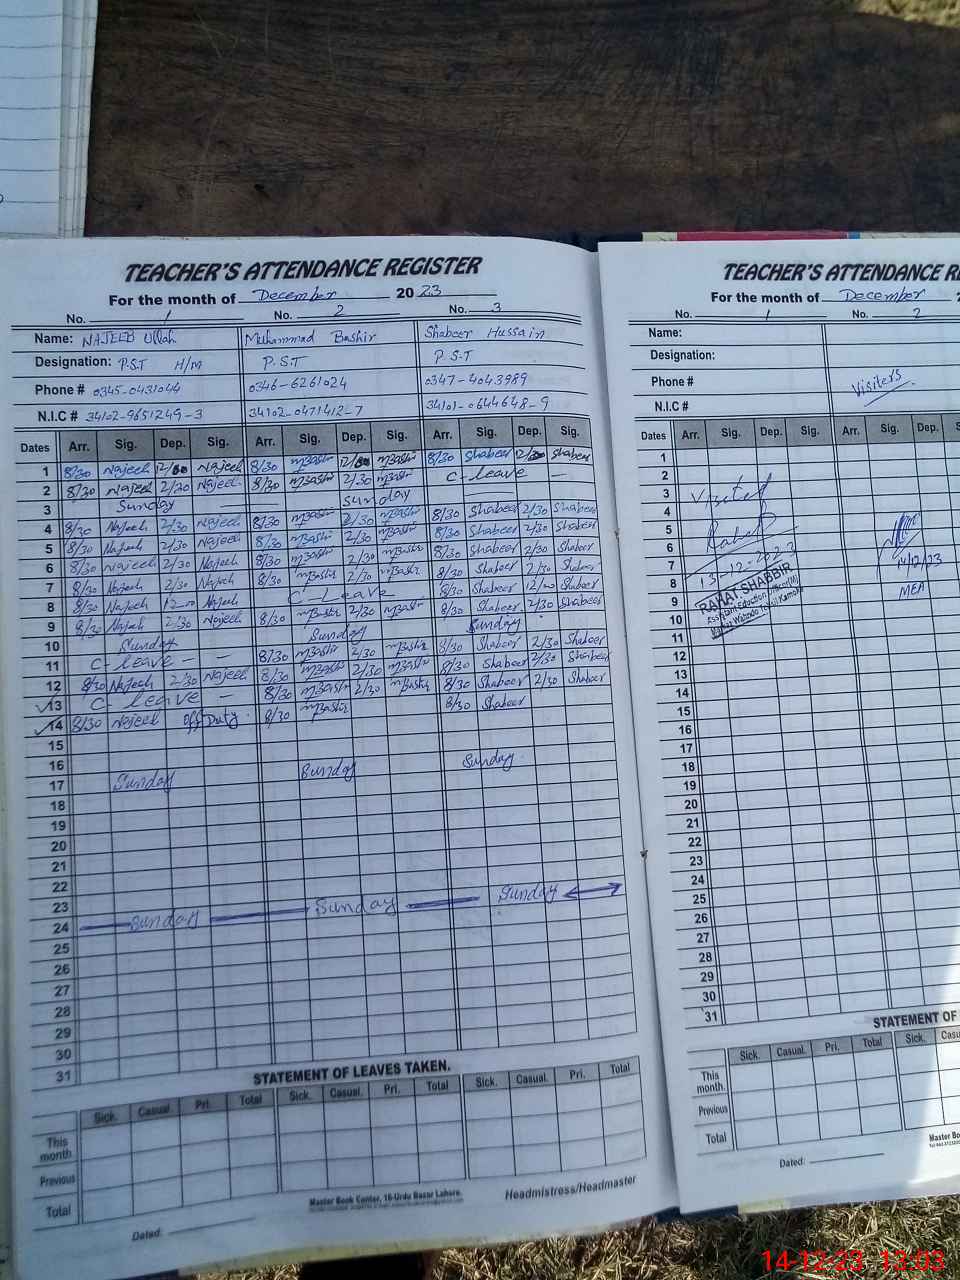 TEACHER'S ATTENDANCE REGISTER
For the month of December 2023
No. 1 No. 2 No. 3
Name: NAJEEB Ullah Muhammad Bashir Shabeer Hussain
Designation: P.S.T H/M P.S.T P.S.T
Phone # 0345-0431044 0346-6261024 0347-4043989
N.I.C # 34102-9651249-3 34102-0471412-7 34101-0644648-9
Dates Arr. Sig. Dep. Sig. Arr. Sig. Dep. Sig. Arr. Sig. Dep. Sig.
1 8/30 Najeeb Najeeb 8/30 mBashir mBashir 8/30 Shabeer Shabeer
2 8/30 Najeeb 2/30 Najeeb 8/30 mBashir 2/30 mBashir C-leave —
3 Sunday — Sunday —
4 8/30 Najeeb 2/30 Najeeb 8/30 mBashir 2/30 mBashir 8/30 Shabeer 2/30 Shabeer
5 8/30 Najeeb 2/30 Najeeb 8/30 mBashir 2/30 mBashir 8/30 Shabeer 2/30 Shabeer
6 8/30 Najeeb 2/30 Najeeb 8/30 mBashir 2/30 mBashir 8/30 Shabeer 2/30 Shabeer
7 8/30 Najeeb 2/30 Najeeb 8/30 mBashir 2/30 mBashir 8/30 Shabeer 2/30 Shabeer
8 8/30 Najeeb 12-00 Najeeb C Leave 8/30 Shabeer 12/00 Shabeer
9 8/30 Najeeb 2/30 Najeeb 8/30 mBashir 2/30 mBashir 8/30 Shabeer 2/30 Shabeer
10 Sunday Sunday Sunday
11 C-leave — — 8/30 mBashir 2/30 mBashir 8/30 Shabeer 2/30 Shabeer
12 8/30 Najeeb 2/30 Najeeb 8/30 mBashir 2/30 mBashir 8/30 Shabeer 2/30 Shabeer
13 C-leave — 8/30 mBashir 2/30 mBashir 8/30 Shabeer 2/30 Shabeer
14 8/30 Najeeb Off Duty. 8/30 mBashir 8/30 Shabeer
15
16
17 Sunday Sunday Sunday.
18
19
20
21
22
23
24 Sunday Sunday Sunday
25
26
27
28
29
30
31
STATEMENT OF LEAVES TAKEN.
Sick. Casual. Pri. Total Sick. Casual. Pri. Total Sick. Casual. Pri. Total
This month
Previous
Total
Master Book Center, 16-Urdu Bazar Lahore.
Headmistress/Headmaster
Dated:
TEACHER'S ATTENDANCE
For the month of December
No. 1 No. 2
Name:
Designation:
Phone # Visiters
N.I.C #
Dates Arr. Sig. Dep. Sig. Arr. Sig. Dep.
1
2
3 Visited
4
5
6
7 13-12-2023
8 RAHAT SHABBIR 14/12/23
9 Assistant Education Officer(M) MEA
10 Markaz Wahndo Tehsil Kamoke
11
12
13
14
15
16
17
18
19
20
21
22
23
24
25
26
27
28
29
30
31
STATEMENT OF
Sick. Casual. Pri. Total Sick.
This month.
Previous
Total
Master
Dated:
14-12-23 13:03